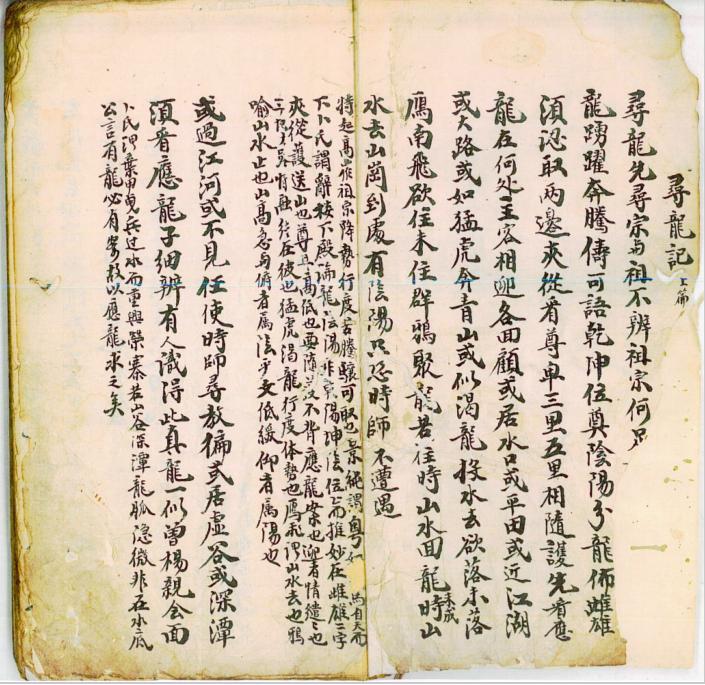 尋龍記上篇
尋龍先尋宗与祖不辨祖宗何足
龍踴躍奔騰儔可語乾坤位奠陰陽分龍佈雌雄
須認取兩邊夾從看尊卑三里五里相隨護先看應
龍在何處主客相迎各回顧或居水口或平田或近江湖
或大路或如猛虎奔青山或似渴龍投水去欲落未落
鴈南飛欲住未住群鴉聚龍若住時山水回龍未成時山
水去山崗到處有陰陽只恐時師不遭遇
特起高崔祖宗降勢行度若騰驤可取也景純謂粵如馬自天而
下卜氏謂辭樓下殿端龍陰陽非亥陽坤陰位上而推妙在雌雄二字
夾從護送山也尊卑高低也要隨從不背應龍案也迎者情繾也
在彼也猛虎渴龍行度体勢也鴈飛謂山水去也鴉
喻山水止也山高急与俯者屬陰平支低緩仰者屬陽也
或過江河或不見任使時師尋教徧或居虛谷或深潭
須看應龍子細辨有人識得此真龍一似曾楊親會面
卜氏謂棄甲曳兵过水而重興營寨若山谷深潭龍脈隱微非在水底
公言有龍必有案故以應龍求之矣